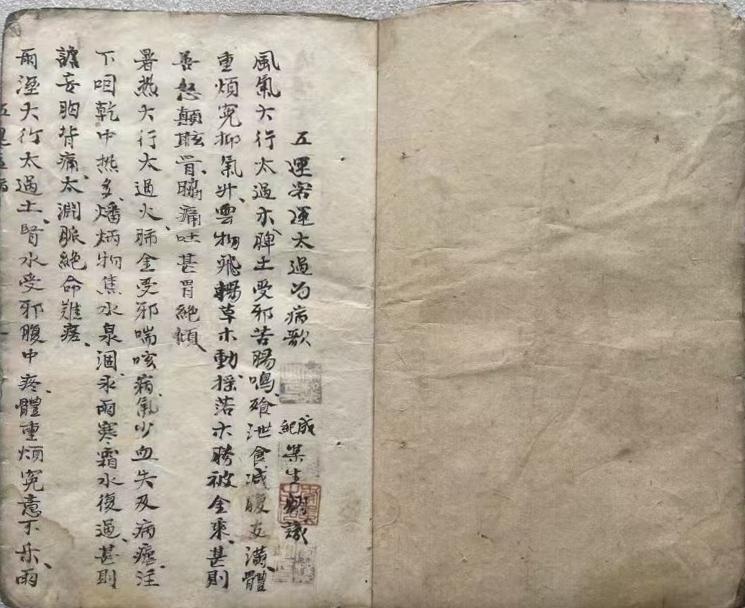 五運客運太過為病歌
成紀業生謝識
風氣大行太過木脾土受邪苦腸鳴飱泄食減腹支滿體
重煩冤抑氣升雲物飛揚草木動搖落木勝被金乘甚則
善怒顛眩冒脇痛吐甚胃絕傾
暑熱大行太過火肺金受邪喘咳病氣少血失及病瘧注
下咽乾中热多燔焫物焦水泉涸氷雨寒霜水復過甚則
譫妄胸背痛太淵脈絕命難瘥
雨溼大行太過土腎水受邪腹中疼體重煩冤意不乐雨